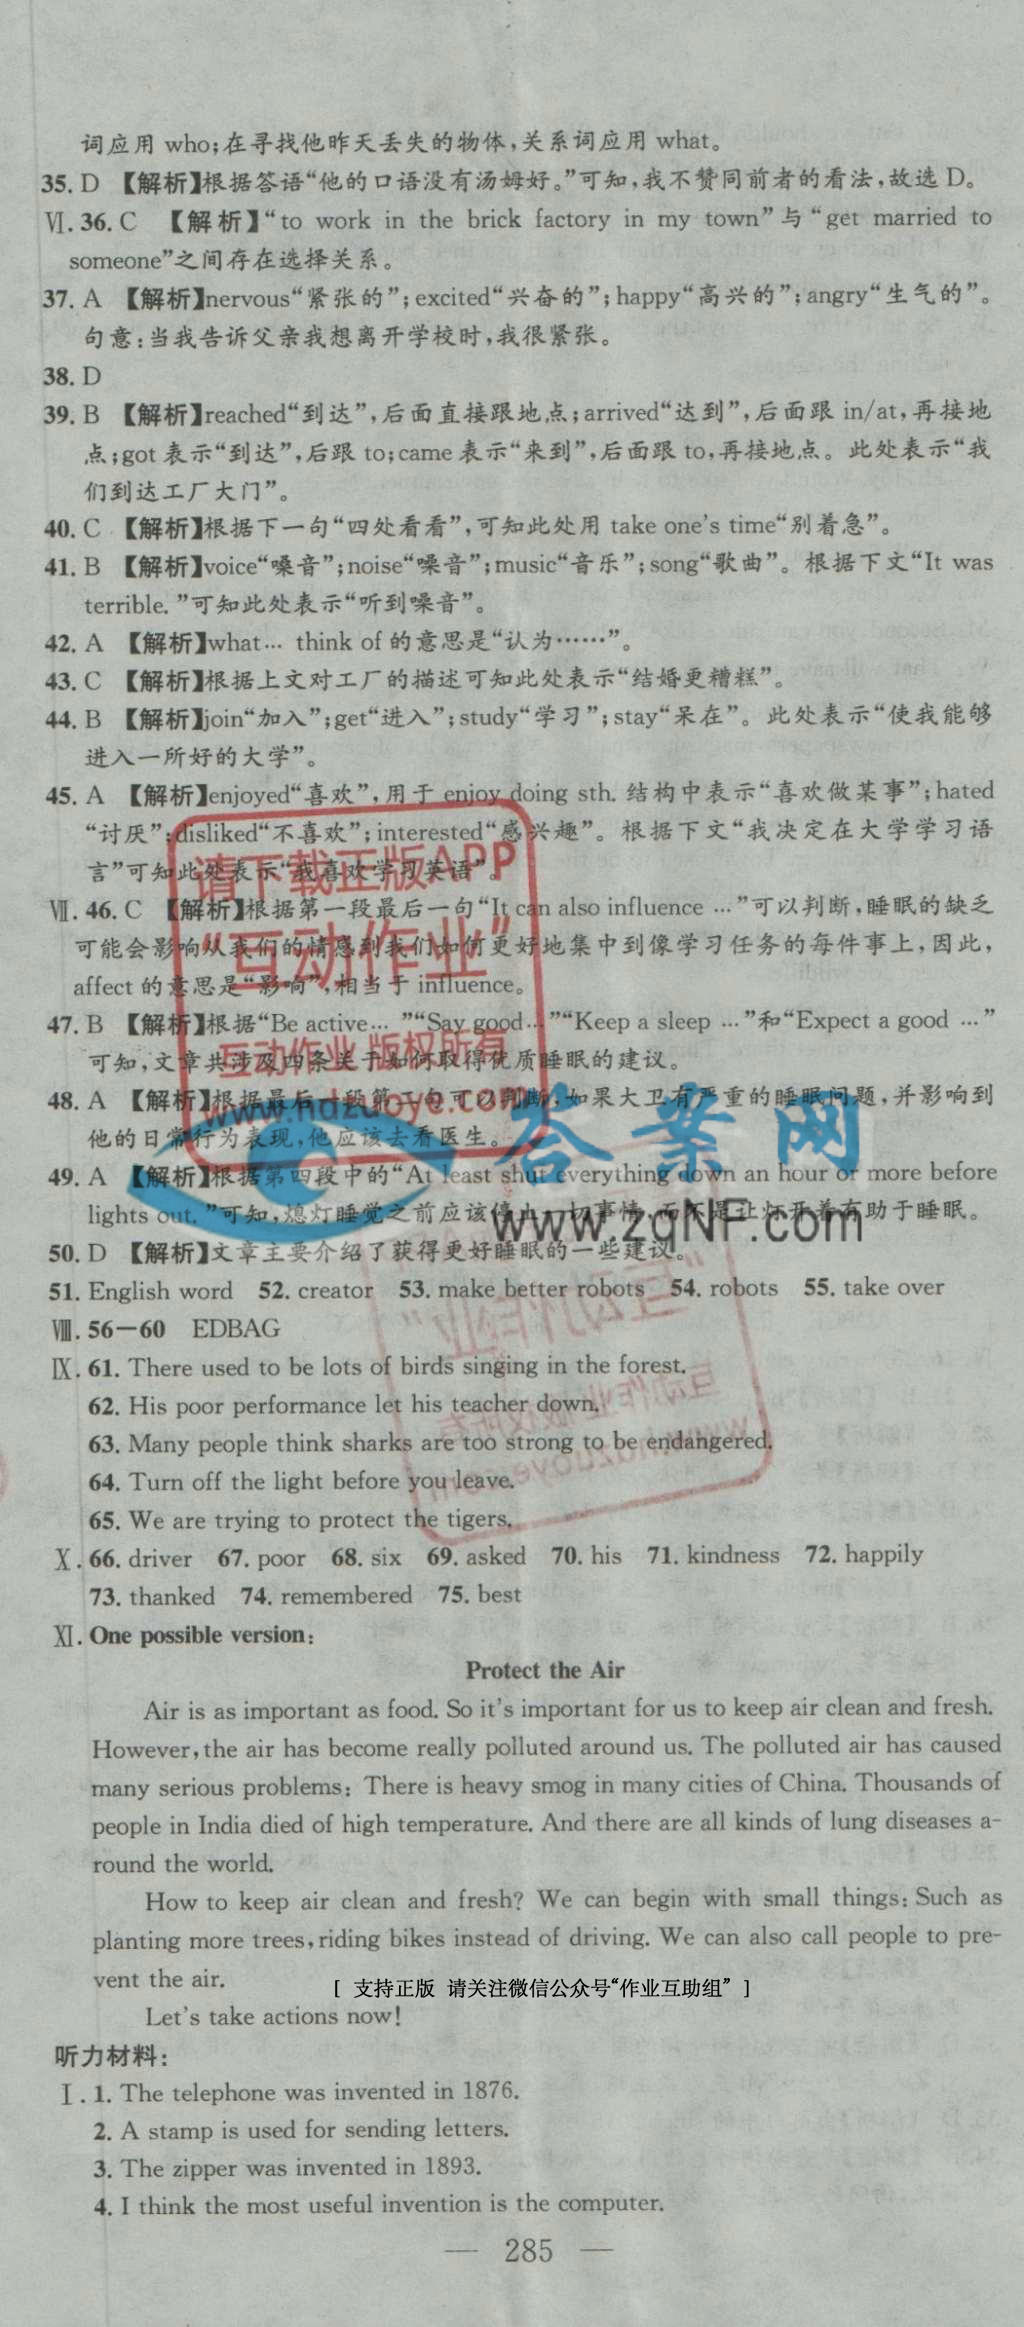 词应用 who;在寻找他昨天丢失的物体,关系词应用 what。
35. D 【解析】根据答语“他的口语没有汤姆好。”可知,我不赞同前者的看法,故选 D。
Ⅵ. 36. C 【解析】“to work in the brick factory in my town”与“get married to
someone”之间存在选择关系。
37. A 【解析】nervous“紧张的”;excited“兴奋的”;happy“高兴的”;angry“生气的”。
句意:当我告诉父亲我想离开学校时,我很紧张。
38. D
39. B 【解析】reached“到达”,后面直接跟地点;arrived“达到”,后面跟 in/at,再接地
点;got 表示“到达”,后跟 to;came 表示“来到”,后面跟 to,再接地点。此处表示“我
们到达工厂大门”。
40. C 【解析】根据下一句“四处看看”,可知此处用 take one's time“别着急”。
41. B 【解析】voice“嗓音”;noise“噪音”;music“音乐”;song“歌曲”。根据下文“It was
terrible.”可知此处表示“听到噪音”。
42. A 【解析】what… think of 的意思是“认为……”。
43. C 【解析】根据上文对工厂的描述可知此处表示“结婚更糟糕”。
44. B 【解析】join“加入”;get“进入”;study“学习”;stay“呆在”。此处表示“使我能够
进入一所好的大学”。
45. A 【解析】enjoyed“喜欢”,用于 enjoy doing sth. 结构中表示“喜欢做某事”;hated
“讨厌”;disliked“不喜欢”;interested“感兴趣”。根据下文“我决定在大学学习语
言”可知此处表示“我喜欢学习英语”。
Ⅶ. 46. C 【解析】根据第一段最后一句“It can also influence …”可以判断,睡眠的缺乏
可能会影响从我们的情感到我们如何更好地集中到像学习任务的每件事上,因此,
affect 的意思是“影响”,相当于 influence。
47. B 【解析】根据“Be active…”“Say good…”“Keep a sleep …”和“Expect a good …”
可知,文章共涉及四条关于如何取得优质睡眠的建议。
48. A 【解析】根据最后一段第二句可以判断,如果大卫有严重的睡眠问题,并影响到
他的日常行为表现,他应该去看医生。
49. A 【解析】根据第四段中的“At least shut everything down an hour or more before
lights out.”可知,熄灯睡觉之前应该停止一切事情,而不是让灯开着有助于睡眠。
50. D 【解析】文章主要介绍了获得更好睡眠的一些建议。
51. English word 52. creator 53. make better robots 54. robots 55. take over
Ⅷ. 56—60 EDBAG
Ⅸ. 61. There used to be lots of birds singing in the forest.
62. His poor performance let his teacher down.
63. Many people think sharks are too strong to be endangered.
64. Turn off the light before you leave.
65. We are trying to protect the tigers.
Ⅹ. 66. driver 67. poor 68. six 69. asked 70. his 71. kindness 72. happily
73. thanked 74. remembered 75. best
Ⅺ. One possible version:
Protect the Air
Air is as important as food. So it's important for us to keep air clean and fresh.
However, the air has become really polluted around us. The polluted air has caused
many serious problems: There is heavy smog in many cities of China. Thousands of
people in India died of high temperature. And there are all kinds of lung diseases a-
round the world.
How to keep air clean and fresh? We can begin with small things: Such as
planting more trees, riding bikes instead of driving. We can also call people to pre-
vent the air.
[ 支持正版 请关注微信公众号“作业互助组” ]
Let's take actions now!
听力材料:
Ⅰ. 1. The telephone was invented in 1876.
2. A stamp is used for sending letters.
3. The zipper was invented in 1893.
4. I think the most useful invention is the computer.
— 285 —
请下载正版APP
“互动作业”
互动作业 版权所有
www.hdzuoye.com
答案网
www.zqNF.com